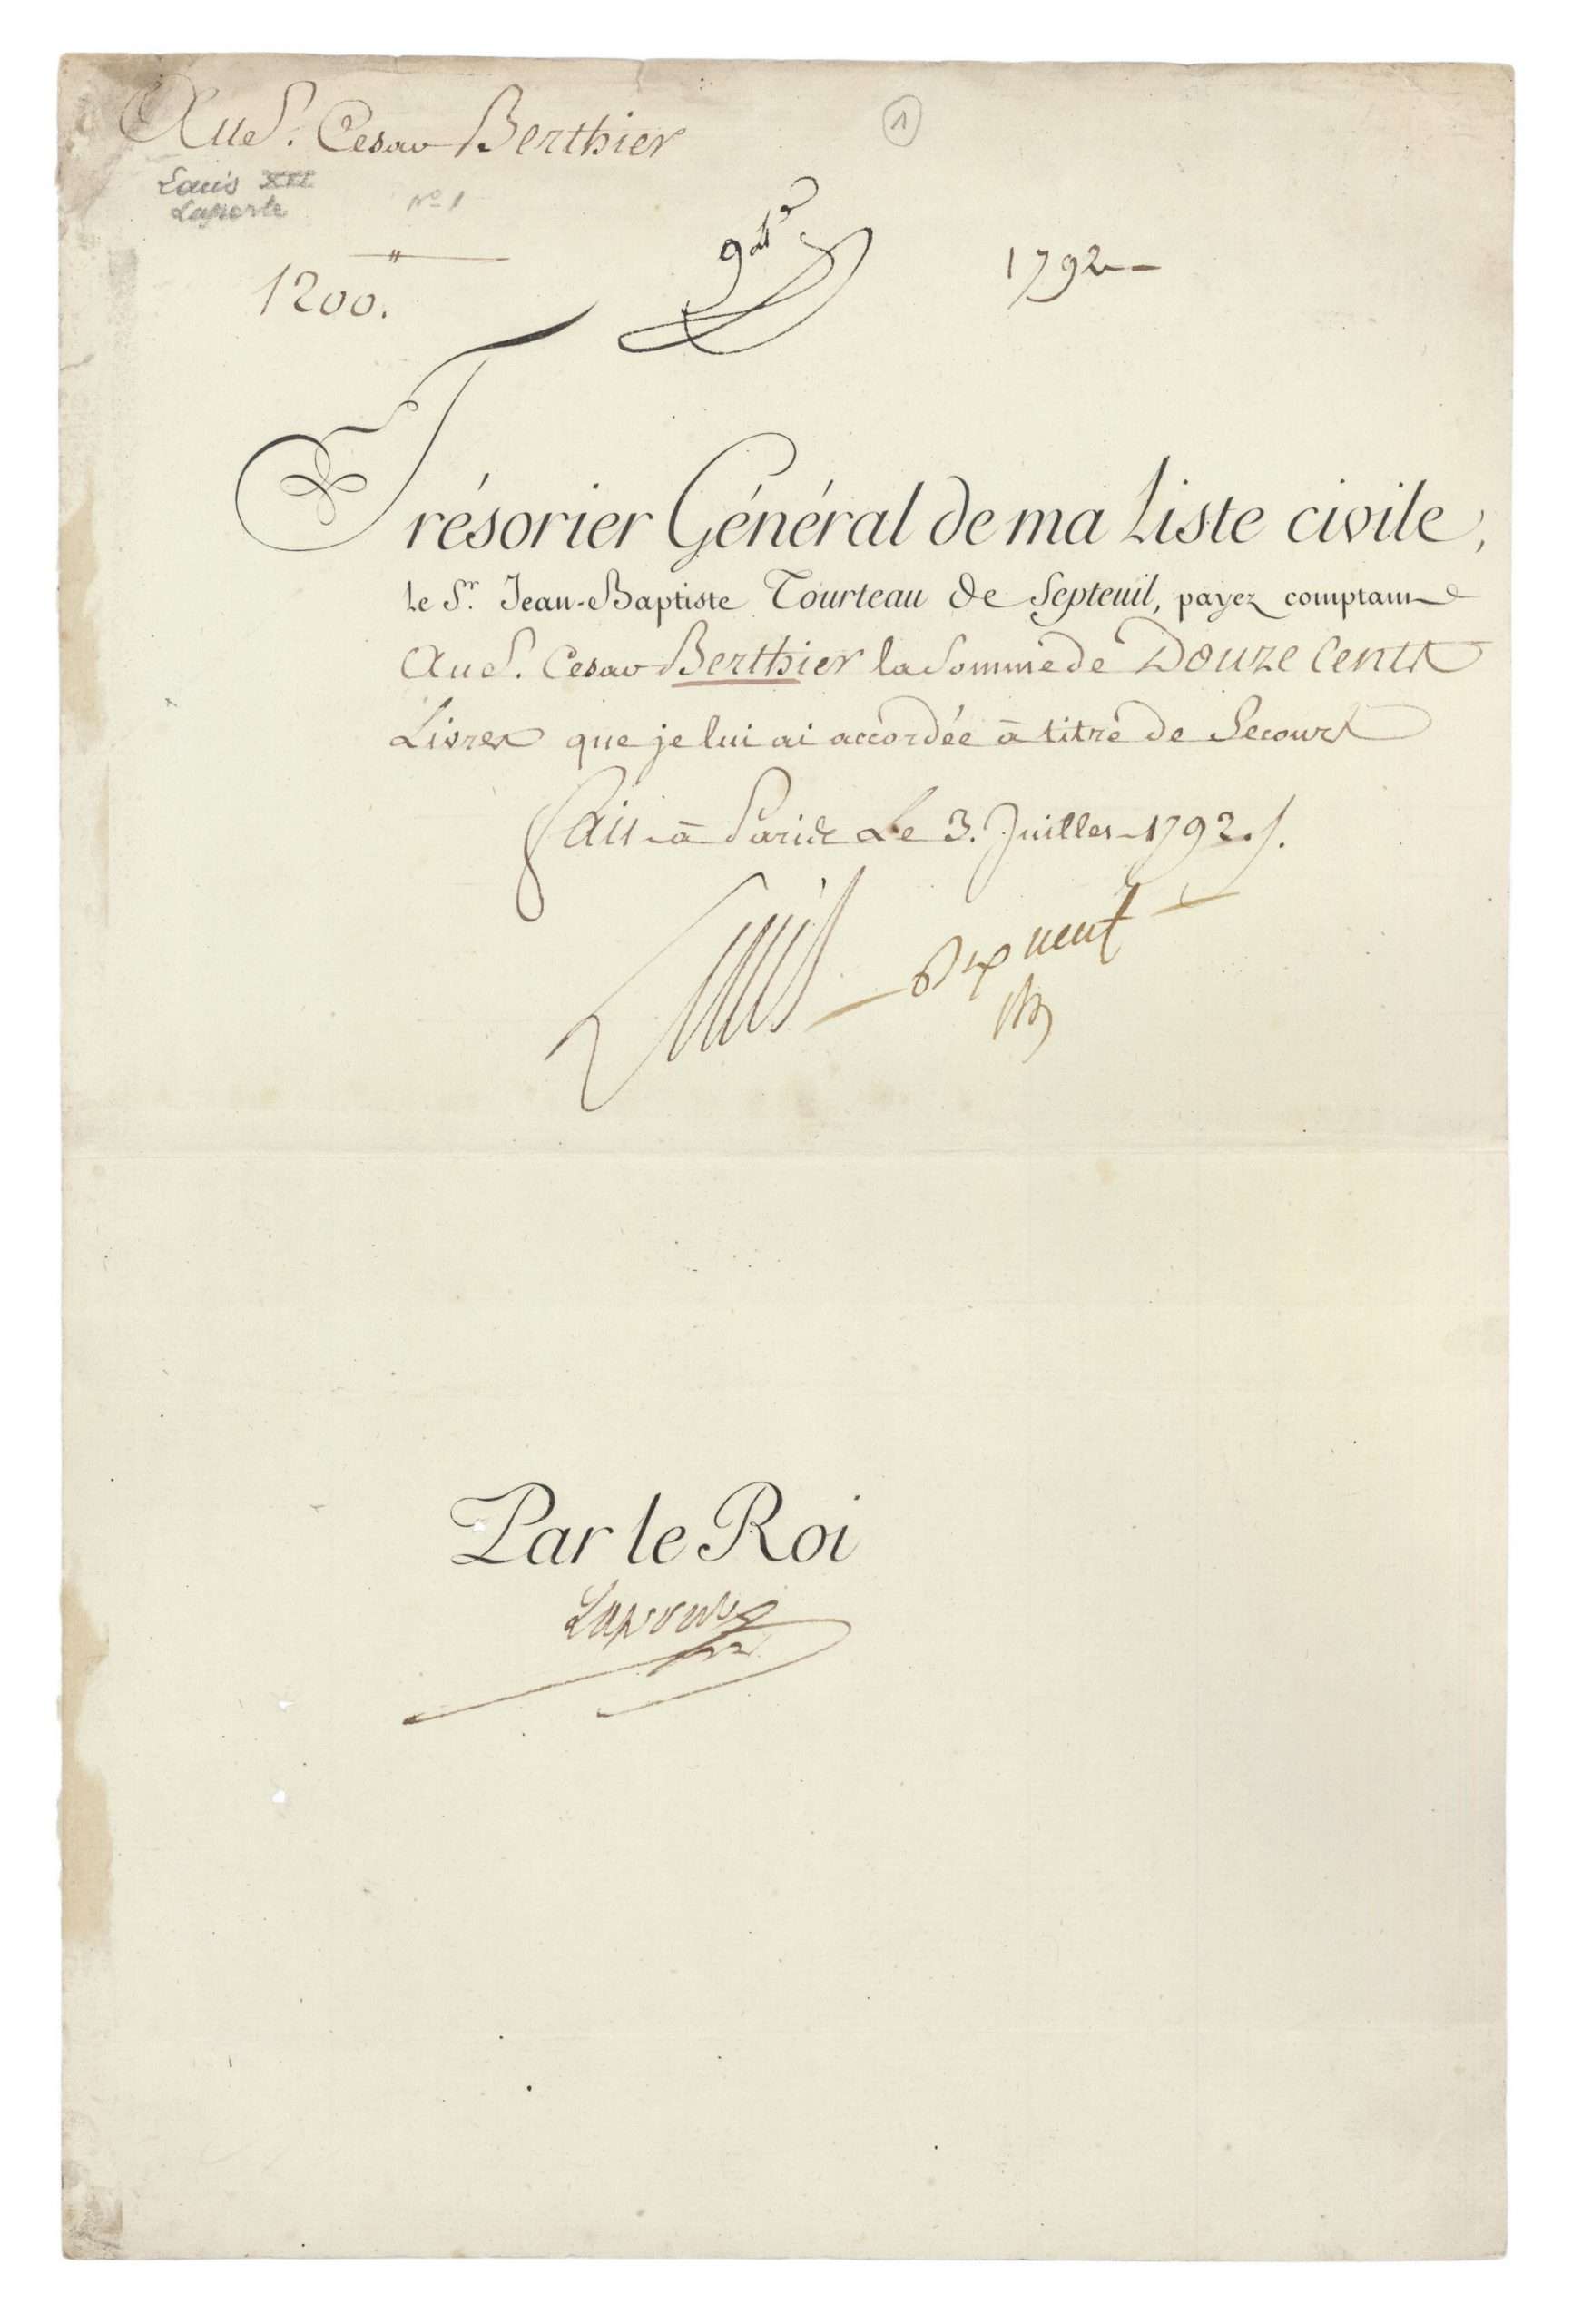 Au S. Cesar Berthier
①
Louis XVI
Laporte
Nº 1
1200.
1792
Trésorier Général de ma Liste civile,
le Sr. Jean-Baptiste Tourteau de Septeuil, payez comptant
Au S. Cesar Berthier la Somme de Douze Cents
Livres que je lui ai accordée à titre de Secours
Fait à Paris Le 3. Juillet 1792./.
Louis
neuf
Par le Roi
Laporte